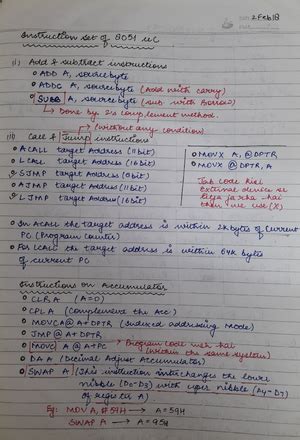 2 Feb 18
Instruction set of 8051 uC
(i) Add & subtract instructions
o ADD A, sourcebyte
o ADDC A, sourcebyte (Add with carry)
o SUBB A, sourcebyte (sub with Borrow)
Done by 2's complement method.
(without any condition)
(ii) Call & Jump instructions
o ACALL target Address (11bit)
o LCALL target Address (16bit)
o SJMP target Address (8bit)
o AJMP target Address (11bit)
o LJMP target Address (16bit)
o MOVX A, @DPTR
o MOVX @DPTR, A
Jab code kisi
external device se
liya ja rha hai
then we use (X)
o In ACALL the target address is within 2k bytes of current
PC (Program Counter)
o For LCALL the target address is within 64k bytes
of current PC
Instructions on Accumulator
o CLR A (A=0)
o CPL A (Complement the Acc)
o MOVC A@A+DPTR (Indexed addressing Mode)
o JMP @A+DPTR
o MOVC A @A+PC Program code
(within the same system)
o DA A (Decimal Adjust Accumulator)
o SWAP A (This instruction interchanges the lower
nibble (D0-D3) with upper nibble (D4-D7)
of register A)
Eg: MOV A, #59H → A = 59H
SWAP A → A = 95H